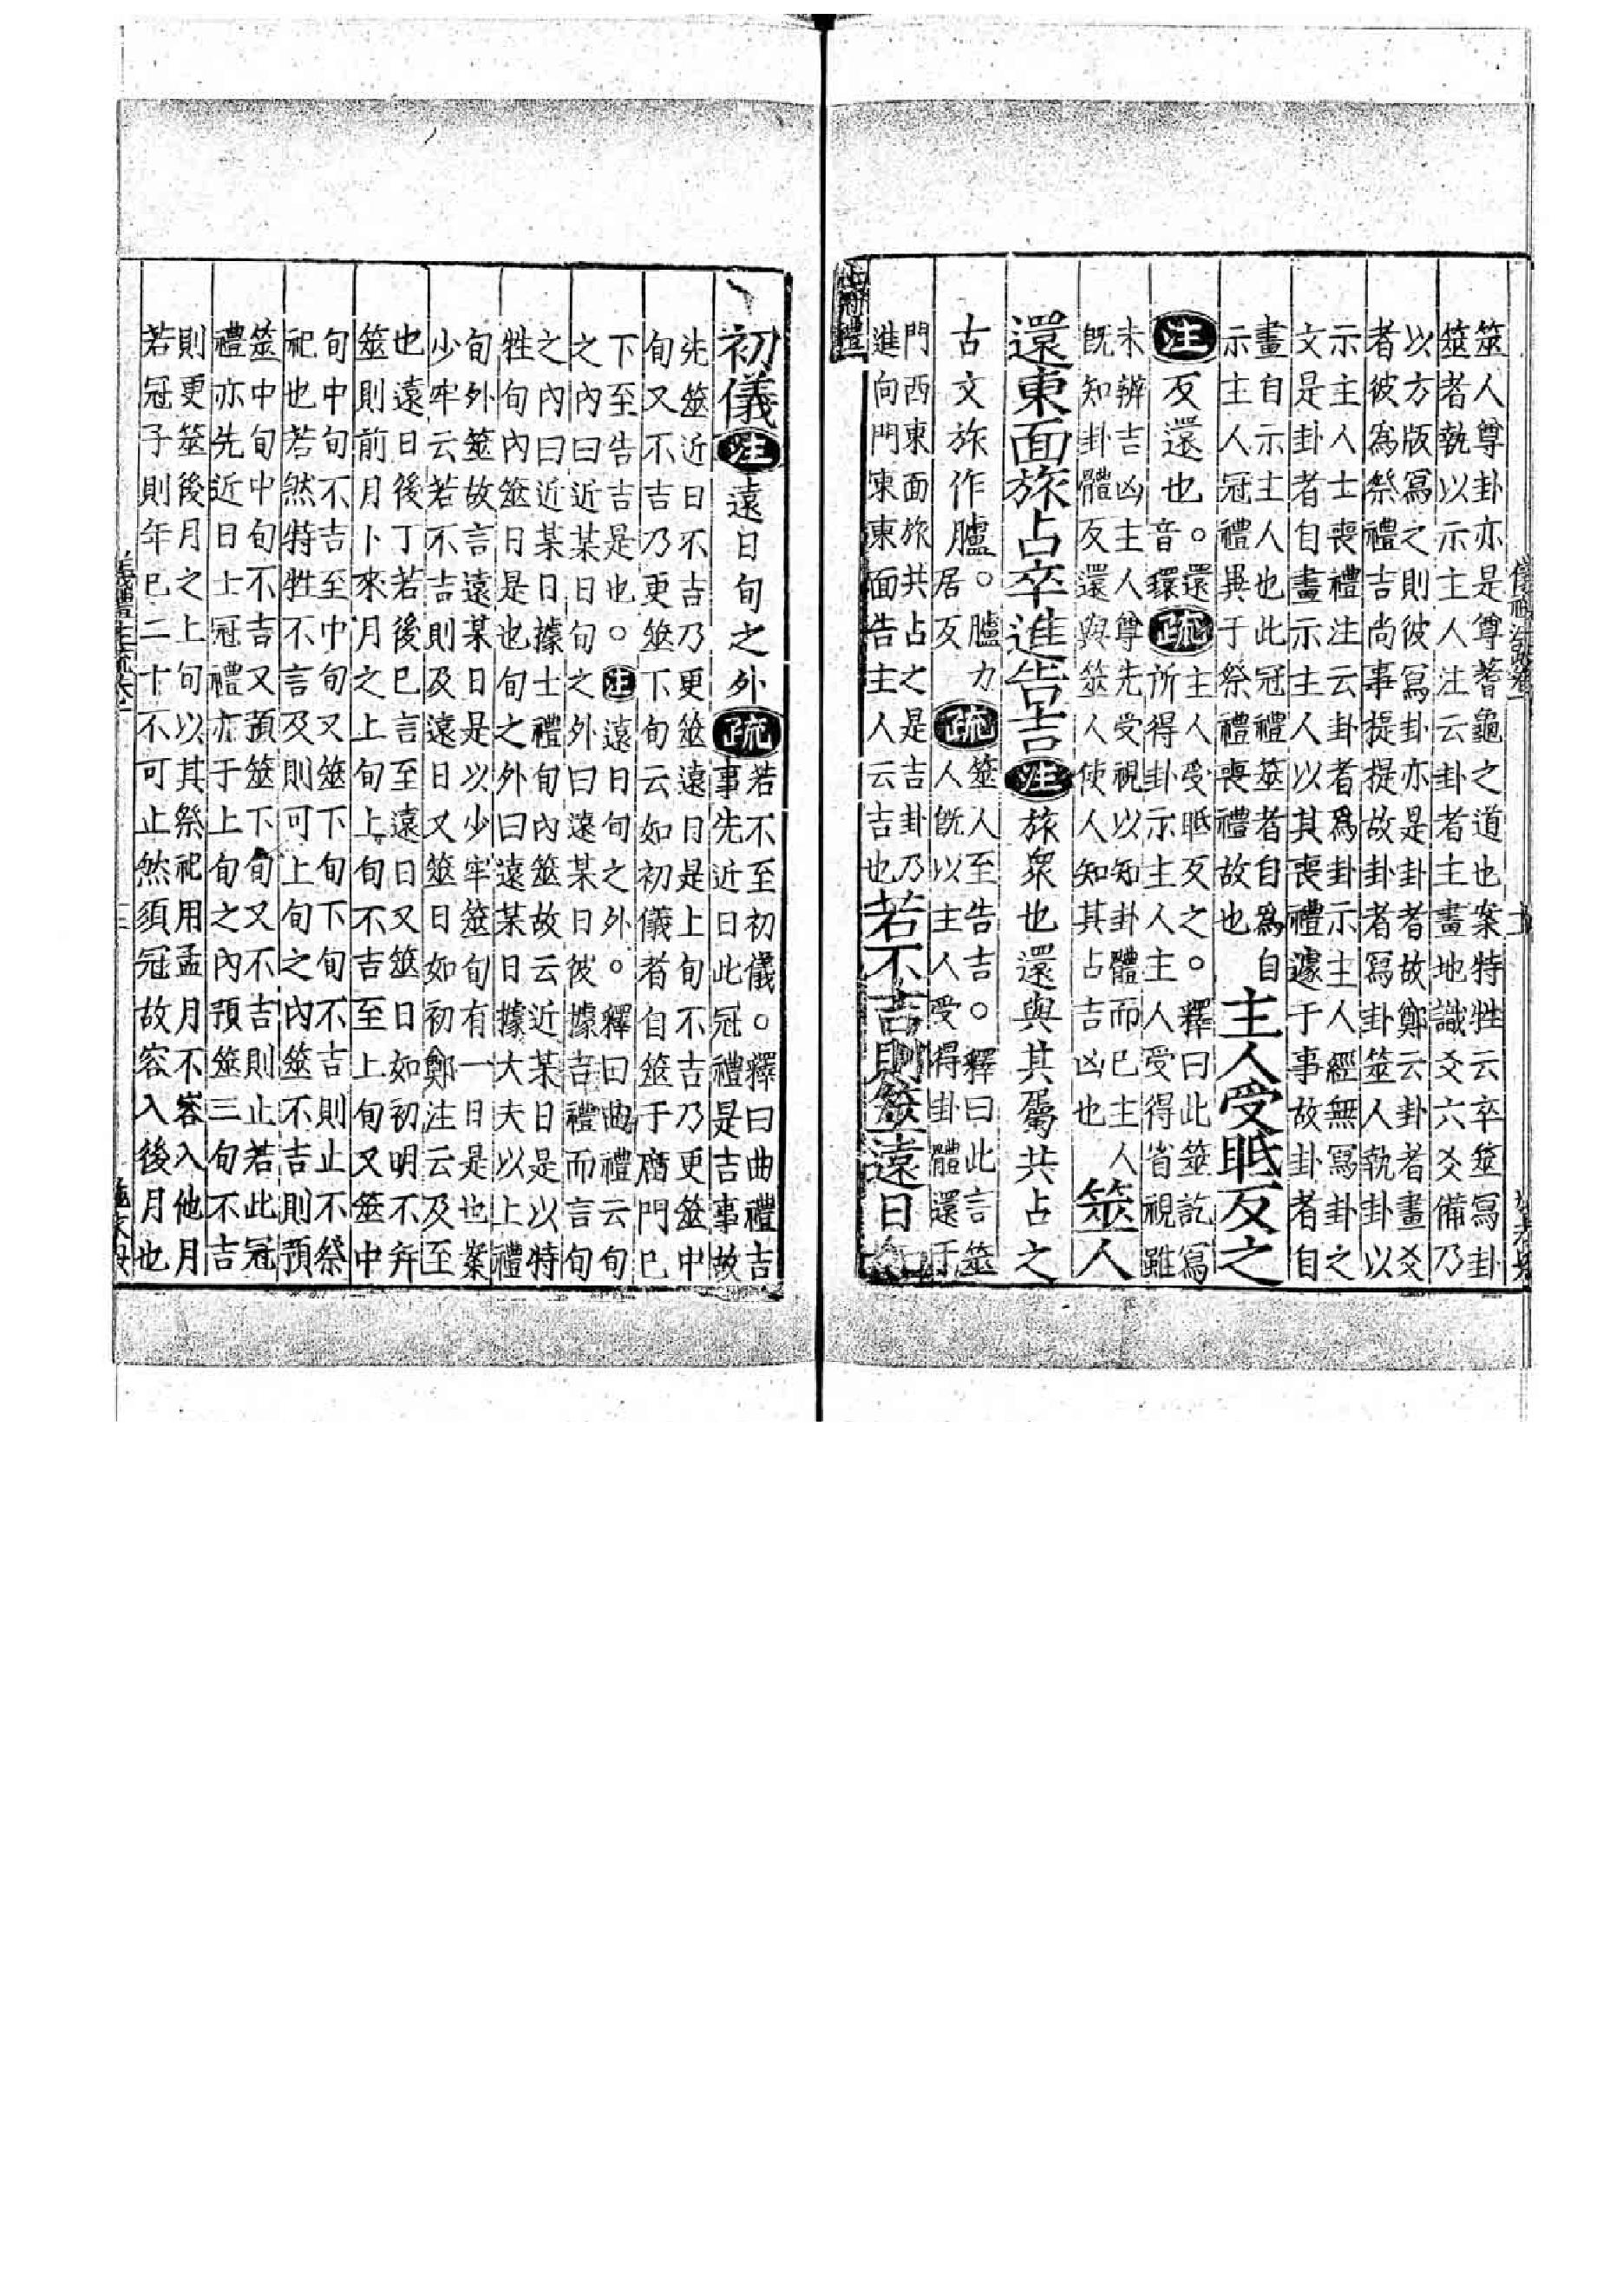 筮人尊卦亦是尊蓍龜之道也案特牲云卒筮寫卦
筮者執以示主人注云卦者主畫地識爻六爻備乃
以方版寫之則彼寫卦亦是卦者故鄭云卦者畫爻
者彼爲祭禮吉尚事提提故卦者寫卦筮人執卦以
示主人士喪禮注云卦者爲卦示主人經無寫卦之
文是卦者自畫示主人以其喪禮遽于事故卦者自
畫自示主人也此冠禮筮者自爲自
示主人冠禮異于祭禮喪禮故也
主人受眂反之
注反還也。還音環疏主人受眂反之。釋曰此筮訖寫
所得卦示主人主人受得省視雖
未辨吉凶主人尊先受視以知卦體而已主人
旣知卦體反還與筮人使人知其占吉凶也
筮人
還東面旅占卒進告吉注旅衆也還與其屬共占之
古文旅作臚。臚力居反疏筮人至告吉。釋曰此言筮
人旣以主人受得卦體還于
門西東面旅共占之是吉卦乃
進向門東東面告主人云吉也
若不吉則筮遠日如
初儀注遠日旬之外疏若不至初儀。釋曰曲禮吉
事先近日此冠禮是吉事故
先筮近日不吉乃更筮遠日是上旬不吉乃更筮中
旬又不吉乃更筮下旬云如初儀者自筮于廟門已
下至告吉是也。注遠日旬之外。釋曰曲禮云旬
之內曰近某日旬之外曰遠某日彼據吉禮而言旬
之內曰近某日據士禮旬內筮故云近某日是以特
牲旬內筮日是也旬之外曰遠某日據大夫以上禮
旬外筮故言遠某日是以少牢筮旬有一日是也案
少牢云若不吉則及遠日又筮日如初鄭注云及至
也遠日後丁若後巳言至遠日又筮日如初明不并
筮則前月卜來月之上旬上旬不吉至上旬又筮中
旬中旬不吉至中旬又筮下旬下旬不吉則止不祭
祀也若然特牲不言及則可上旬之內筮不吉則預
筮中旬中旬不吉又預筮下旬又不吉則止若此冠
禮亦先近日士冠禮亦于上旬之內預筮三旬不吉
則更筮後月之上旬以其祭祀用孟月不容入他月
若冠子則年已二十不可止然須冠故容入後月也